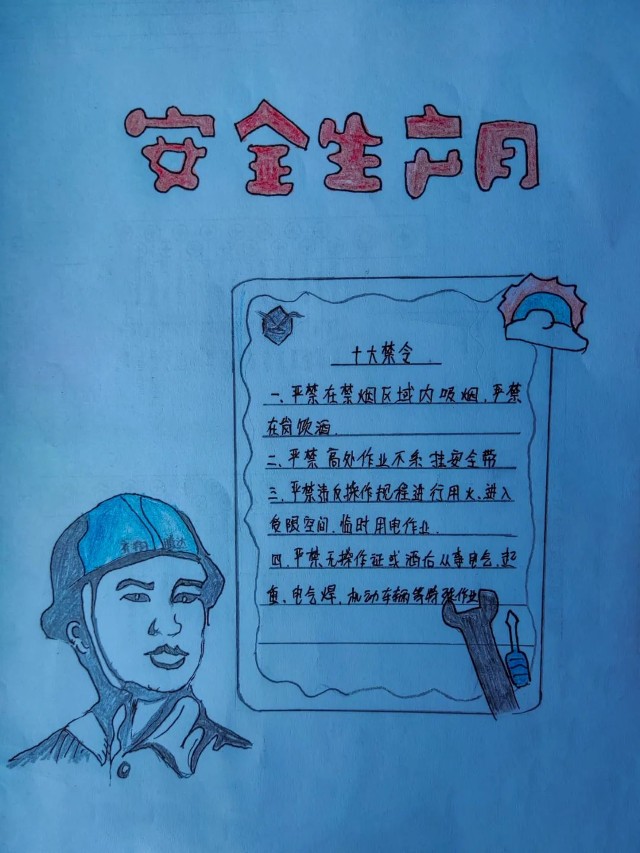 安全生产月
十大禁令
一、严禁在禁烟区域内吸烟,严禁
在岗饮酒.
二、严禁高处作业不系挂安全带
三、严禁违反操作规程进行用火、进入
受限空间、临时用电作业.
四、严禁无操作证或酒后从事电气、起
重、电气焊、机动车辆等特殊作业